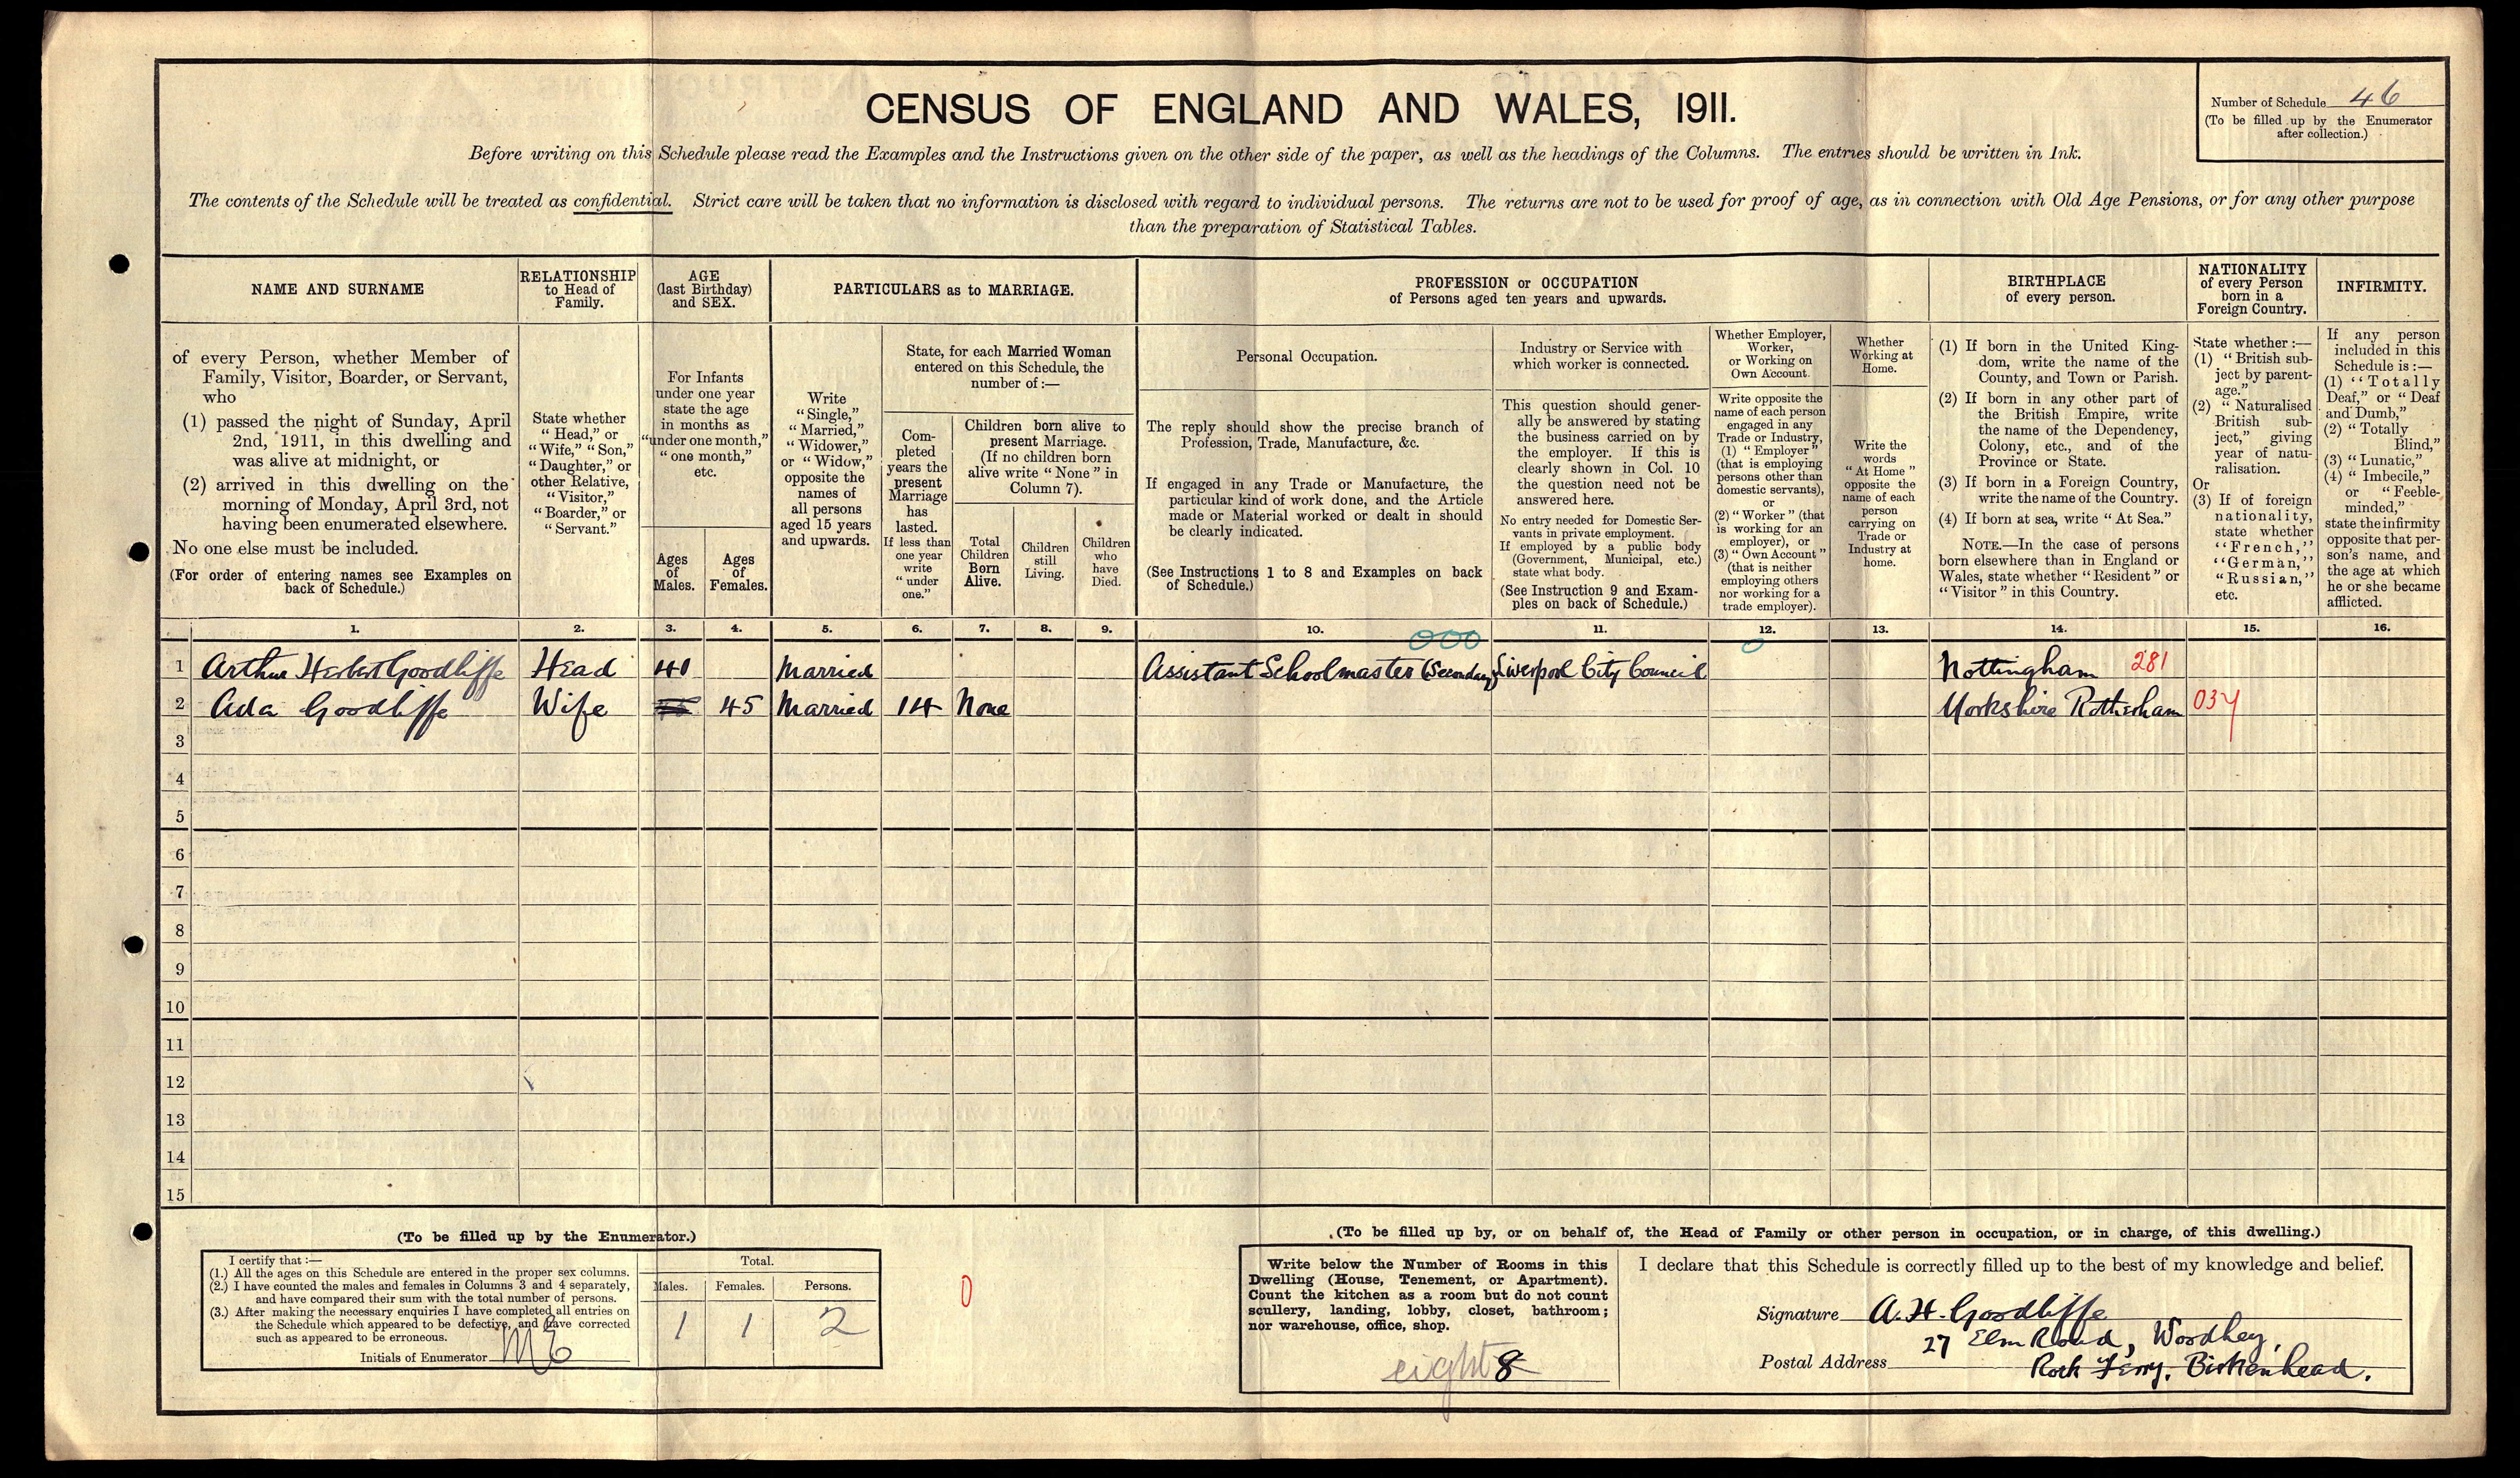 CENSUS OF ENGLAND AND WALES, 1911.
Number of Schedule 46
(To be filled up by the Enumerator
after collection.)
Before writing on this Schedule please read the Examples and the Instructions given on the other side of the paper, as well as the headings of the Columns. The entries should be written in Ink.
The contents of the Schedule will be treated as confidential. Strict care will be taken that no information is disclosed with regard to individual persons. The returns are not to be used for proof of age, as in connection with Old Age Pensions, or for any other purpose
than the preparation of Statistical Tables.
NAME AND SURNAME
of every Person, whether Member of
Family, Visitor, Boarder, or Servant,
who
(1) passed the night of Sunday, April
2nd, 1911, in this dwelling and
was alive at midnight, or
(2) arrived in this dwelling on the
morning of Monday, April 3rd, not
having been enumerated elsewhere.
No one else must be included.
(For order of entering names see Examples on
back of Schedule.)
RELATIONSHIP
to Head of
Family.
State whether
"Head," or
"Wife," "Son,"
"Daughter," or
other Relative,
"Visitor,"
"Boarder," or
"Servant."
AGE
(last Birthday)
and SEX.
For Infants
under one year
state the age
in months as
"under one month,"
"one month,"
etc.
Ages
of
Males.
Ages
of
Females.
PARTICULARS as to MARRIAGE.
Write
"Single,"
"Married,"
"Widower,"
or "Widow,"
opposite the
names of
all persons
aged 15 years
and upwards.
State, for each Married Woman
entered on this Schedule, the
number of:—
Com-
pleted
years the
present
Marriage
has
lasted.
If less than
one year
write
"under
one."
Children born alive to
present Marriage.
(If no children born
alive write "None" in
Column 7).
Total
Children
Born
Alive.
Children
still
Living.
Children
who
have
Died.
PROFESSION or OCCUPATION
of Persons aged ten years and upwards.
Personal Occupation.
The reply should show the precise branch of
Profession, Trade, Manufacture, &c.
If engaged in any Trade or Manufacture, the
particular kind of work done, and the Article
made or Material worked or dealt in should
be clearly indicated.
(See Instructions 1 to 8 and Examples on back
of Schedule.)
Industry or Service with
which worker is connected.
This question should gener-
ally be answered by stating
the business carried on by
the employer. If this is
clearly shown in Col. 10
the question need not be
answered here.
No entry needed for Domestic Ser-
vants in private employment.
If employed by a public body
(Government, Municipal, etc.)
state what body.
(See Instruction 9 and Exam-
ples on back of Schedule.)
Whether Employer,
Worker,
or Working on
Own Account.
Write opposite the
name of each person
engaged in any
Trade or Industry,
(1) "Employer"
(that is employing
persons other than
domestic servants),
or
(2) "Worker" (that
is working for an
employer), or
(3) "Own Account"
(that is neither
employing others
nor working for a
trade employer).
Whether
Working at
Home.
Write the
words
"At Home"
opposite the
name of each
person
carrying on
Trade or
Industry at
home.
BIRTHPLACE
of every person.
(1) If born in the United King-
dom, write the name of the
County, and Town or Parish.
(2) If born in any other part of
the British Empire, write
the name of the Dependency,
Colony, etc., and of the
Province or State.
(3) If born in a Foreign Country,
write the name of the Country.
(4) If born at sea, write "At Sea."
NOTE.—In the case of persons
born elsewhere than in England or
Wales, state whether "Resident" or
"Visitor" in this Country.
NATIONALITY
of every Person
born in a
Foreign Country.
State whether:—
(1) "British sub-
ject by parent-
age."
(2) "Naturalised
British sub-
ject," giving
year of natu-
ralisation.
Or
(3) If of foreign
nationality,
state whether
"French,"
"German,"
"Russian,"
etc.
INFIRMITY.
If any person
included in this
Schedule is:—
(1) "Totally
Deaf," or "Deaf
and Dumb,"
(2) "Totally
Blind,"
(3) "Lunatic,"
(4) "Imbecile,"
or "Feeble-
minded,"
state the infirmity
opposite that per-
son's name, and
the age at which
he or she became
afflicted.
1. 2. 3. 4. 5. 6. 7. 8. 9. 10. 11. 12. 13. 14. 15. 16.
000 0
1 Arthur Herbert Goodliffe Head 40 Married Assistant Schoolmaster (Secondary) Liverpool City Council Nottingham 281
2 Ada Goodliffe Wife 45 Married 14 None Yorkshire Rotherham 034
3
4
5
6
7
8
9
10
11
12
13
14
15
(To be filled up by the Enumerator.)
I certify that:—
(1.) All the ages on this Schedule are entered in the proper sex columns.
(2.) I have counted the males and females in Columns 3 and 4 separately,
and have compared their sum with the total number of persons.
(3.) After making the necessary enquiries I have completed all entries on
the Schedule which appeared to be defective, and have corrected
such as appeared to be erroneous.
Initials of Enumerator ME
Total.
Males. Females. Persons.
1 1 2
0
(To be filled up by, or on behalf of, the Head of Family or other person in occupation, or in charge, of this dwelling.)
Write below the Number of Rooms in this
Dwelling (House, Tenement, or Apartment).
Count the kitchen as a room but do not count
scullery, landing, lobby, closet, bathroom;
nor warehouse, office, shop.
eight 8
I declare that this Schedule is correctly filled up to the best of my knowledge and belief.
Signature A. H. Goodliffe
Postal Address 27 Elm Road, Woodhey,
Rock Ferry. Birkenhead.